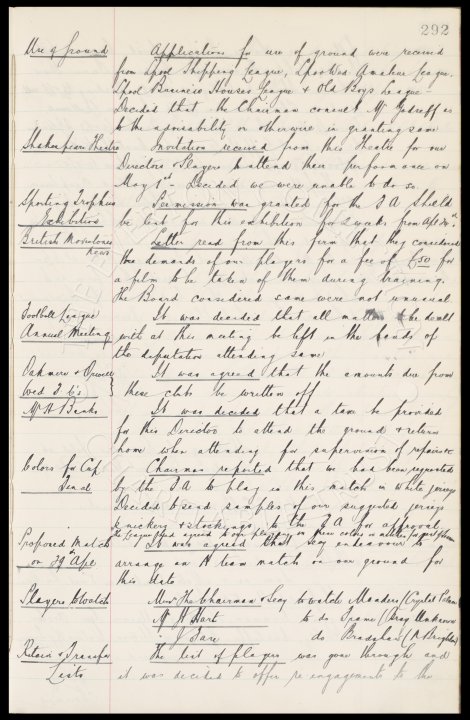 292
Use of Ground Applications for use of ground were received
from L'pool Shopping League, L'pool Wed. Amateur League.
L'pool Business Houses League & Old Boys League.
Decided that the Chairman consult Mr as
to the advisability or otherwise in granting same
Shakespeare Theatre Invitation received from this Theatre for our
Directors & Players to attend their performance on
May 1st - Decided we were unable to do so.
Sporting Trophies Permission was granted for the F A Shield
Exhibition be lent for this exhibition for 2 weeks from Apl
British Movietone Letter read from this firm that they considered
News the demands of our players for a fee of £50 for
a film to be taken of them during training.
The Board considered same were not unusual
Football League It was decided that all matters to be dealt
Annual Meeting with at this meeting be left in the hands of
the deputation attending same
Oakmere & It was agreed that the amounts due from
Wed F C's these clubs be written off
Mr A Banks It was decided that a taxi be provided
for this Director to attend the ground & return
home when attending for supervision of repairs &c
Colors for Cup Chairman reported that we had been requested
Final by the F A to play in this match in white jerseys
Decided to send samples of our suggested jerseys
knickers & stockings to the F A for approval
the League had agreed to our playing in these colors in
Proposed Match It was agreed that Secy endeavour to
on 29th Apl arrange an A team match on our ground for
this date
Players to Watch Messrs The Chairman & Secy to watch Manders (Crystal Palace)
Mr W Hart to do Frame (Thray Unknown
" J Tare do Bradshaw (N Brighton)
Retain & Transfer The list of players was gone through and
Lists it was decided to offer re-engagements to the